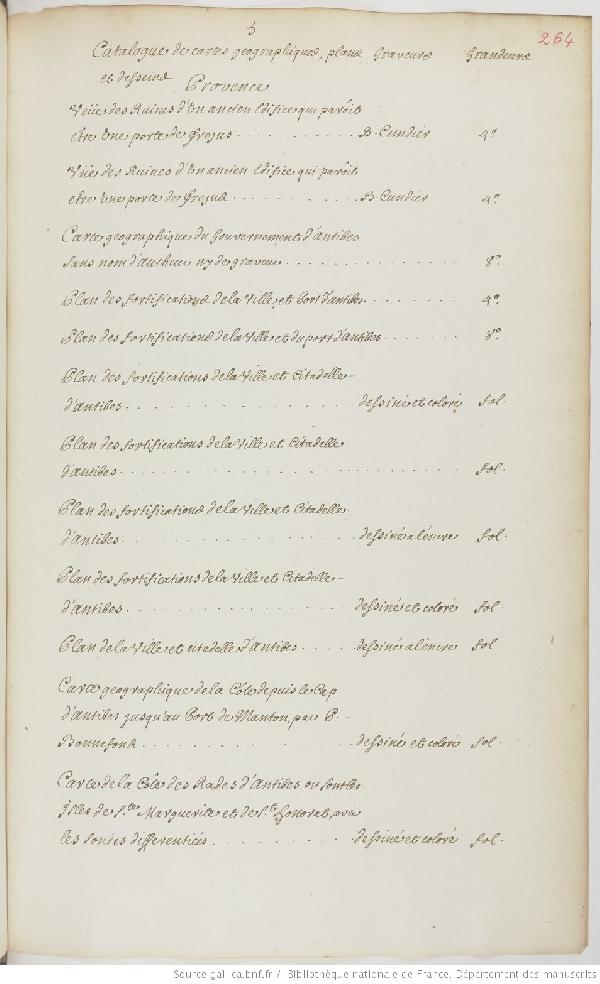 5
264
Catalogue de cartes geographiques, plans Graveurs Grandeurs
et desseins
Provence
Veüe des Ruines d'Un ancien Edifice qui paroît
etre Une porte de Frejus . . . . . . . . . . B. Cundier 4°.
Vüe des Ruines d'Un ancien Edifice qui paroît
etre Une porte de Frejus . . . . . . . . . . B. Cundier 4°.
Carte geographique du Gouvernement d'antibes
sans nom d'autheur ny de graveur . . . . . . . . . . 8°.
Plan des fortifications de la Ville, et Port d'antibes . . . . . . 4°.
Plan des fortifications de la Ville et du port d'antibes . . . . . . 8°.
Plan des fortifications de la Ville et Citadelle
d'antibes . . . . . . . . . . dessiné et coloré fol.
Plan des fortifications de la Ville et Citadelle
d'antibes . . . . . . . . . . fol.
Plan des fortifications de la Ville et Citadelle
d'antibes . . . . . . . . . . dessiné a l'encre fol.
Plan des fortifications de la Ville et Citadelle
d'antibes . . . . . . . . . . dessiné et coloré fol.
Plan de la Ville et citadelle d'antibes . . . . . dessiné a l'encre fol.
Carte geographique de la Côte depuis le Cap
d'antibes jusqu'au Port de Manton, par P.
Bonnefond . . . . . . . . . . dessiné et coloré fol.
Carte de la Côte des Rades d'Antibes ou sont les
Isles de Ste. Marguerite et de St. honorat, avec
les sondes differenties . . . . . . . . . . dessiné et coloré fol.
Source gallica.bnf.fr / Bibliothèque nationale de France. Département des manuscrits